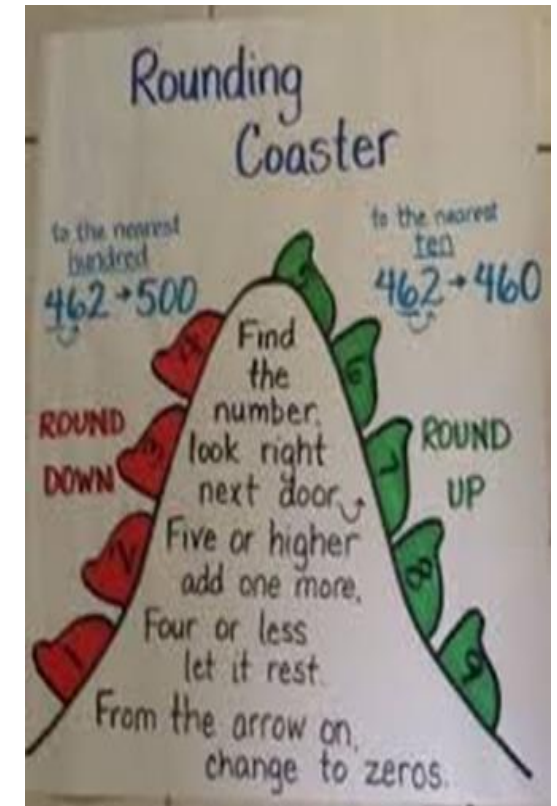 Rounding
Coaster
to the nearest
hundred
462→500
to the nearest
ten
462→460
ROUND
DOWN
ROUND
UP
4
3
2
1
5
6
7
8
9
Find
the
number,
look right
next door
Five or higher
add one more,
Four or less
let it rest.
From the arrow on,
change to zeros.